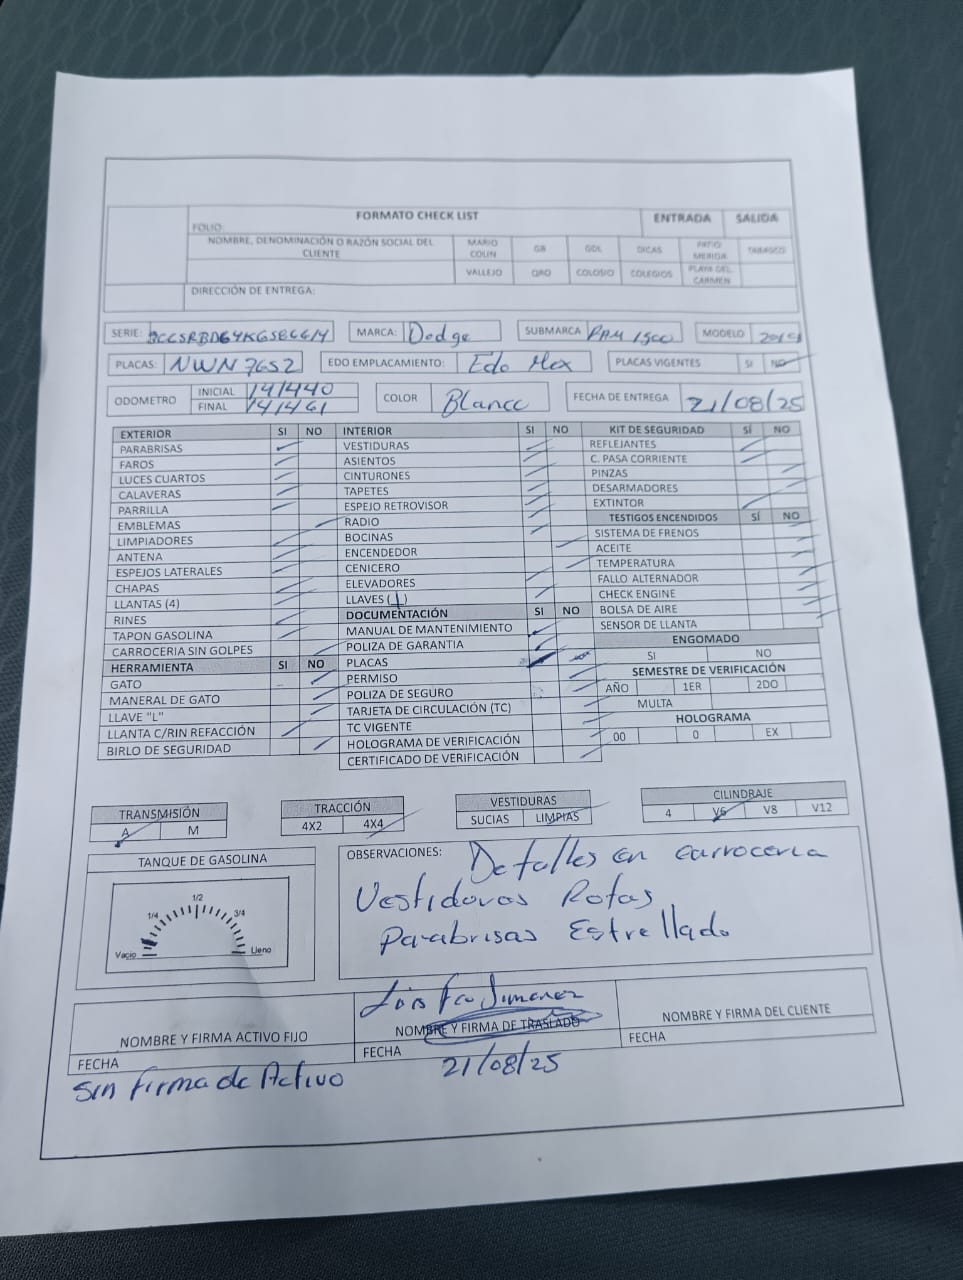 FORMATO CHECK LIST ENTRADA SALIDA
FOLIO:
NOMBRE, DENOMINACIÓN O RAZÓN SOCIAL DEL CLIENTE MARIO COLIN GB GDL DICAS PATIO MERIDA TABASCO
VALLEJO QRO COLOSIO COLEGIOS PLAYA DEL CARMEN
DIRECCIÓN DE ENTREGA:
SERIE: MARCA: Dodge SUBMARCA RAM 1500 MODELO 2019
PLACAS: NWN 7652 EDO EMPLACAMIENTO: Edo Mex PLACAS VIGENTES SI NO
ODOMETRO INICIAL 141440 COLOR Blanco FECHA DE ENTREGA 21/08/25
FINAL 141461
EXTERIOR SI NO INTERIOR SI NO KIT DE SEGURIDAD SÍ NO
PARABRISAS VESTIDURAS REFLEJANTES
FAROS ASIENTOS C. PASA CORRIENTE
LUCES CUARTOS CINTURONES PINZAS
CALAVERAS TAPETES DESARMADORES
PARRILLA ESPEJO RETROVISOR EXTINTOR
EMBLEMAS RADIO TESTIGOS ENCENDIDOS SÍ NO
LIMPIADORES BOCINAS SISTEMA DE FRENOS
ANTENA ENCENDEDOR ACEITE
ESPEJOS LATERALES CENICERO TEMPERATURA
CHAPAS ELEVADORES FALLO ALTERNADOR
LLANTAS (4) LLAVES (1) CHECK ENGINE
RINES DOCUMENTACIÓN SI NO BOLSA DE AIRE
TAPON GASOLINA MANUAL DE MANTENIMIENTO SENSOR DE LLANTA
CARROCERIA SIN GOLPES POLIZA DE GARANTIA ENGOMADO
HERRAMIENTA SI NO PLACAS SI NO
GATO PERMISO SEMESTRE DE VERIFICACIÓN
MANERAL DE GATO POLIZA DE SEGURO AÑO 1ER 2DO
LLAVE "L" TARJETA DE CIRCULACIÓN (TC) MULTA
LLANTA C/RIN REFACCIÓN TC VIGENTE HOLOGRAMA
BIRLO DE SEGURIDAD HOLOGRAMA DE VERIFICACIÓN 00 0 EX
CERTIFICADO DE VERIFICACIÓN
TRANSMISIÓN TRACCIÓN VESTIDURAS CILINDRAJE
A M 4X2 4X4 SUCIAS LIMPIAS 4 V6 V8 V12
TANQUE DE GASOLINA OBSERVACIONES: Detalles en carroceria
Vestiduras Rotas
Parabrisas Estrellado
1/4 1/2 3/4
Vacio Lleno
Luis Fco Jimenez
NOMBRE Y FIRMA ACTIVO FIJO NOMBRE Y FIRMA DE TRASLADO NOMBRE Y FIRMA DEL CLIENTE
FECHA FECHA FECHA
Sin firma de Activo 21/08/25